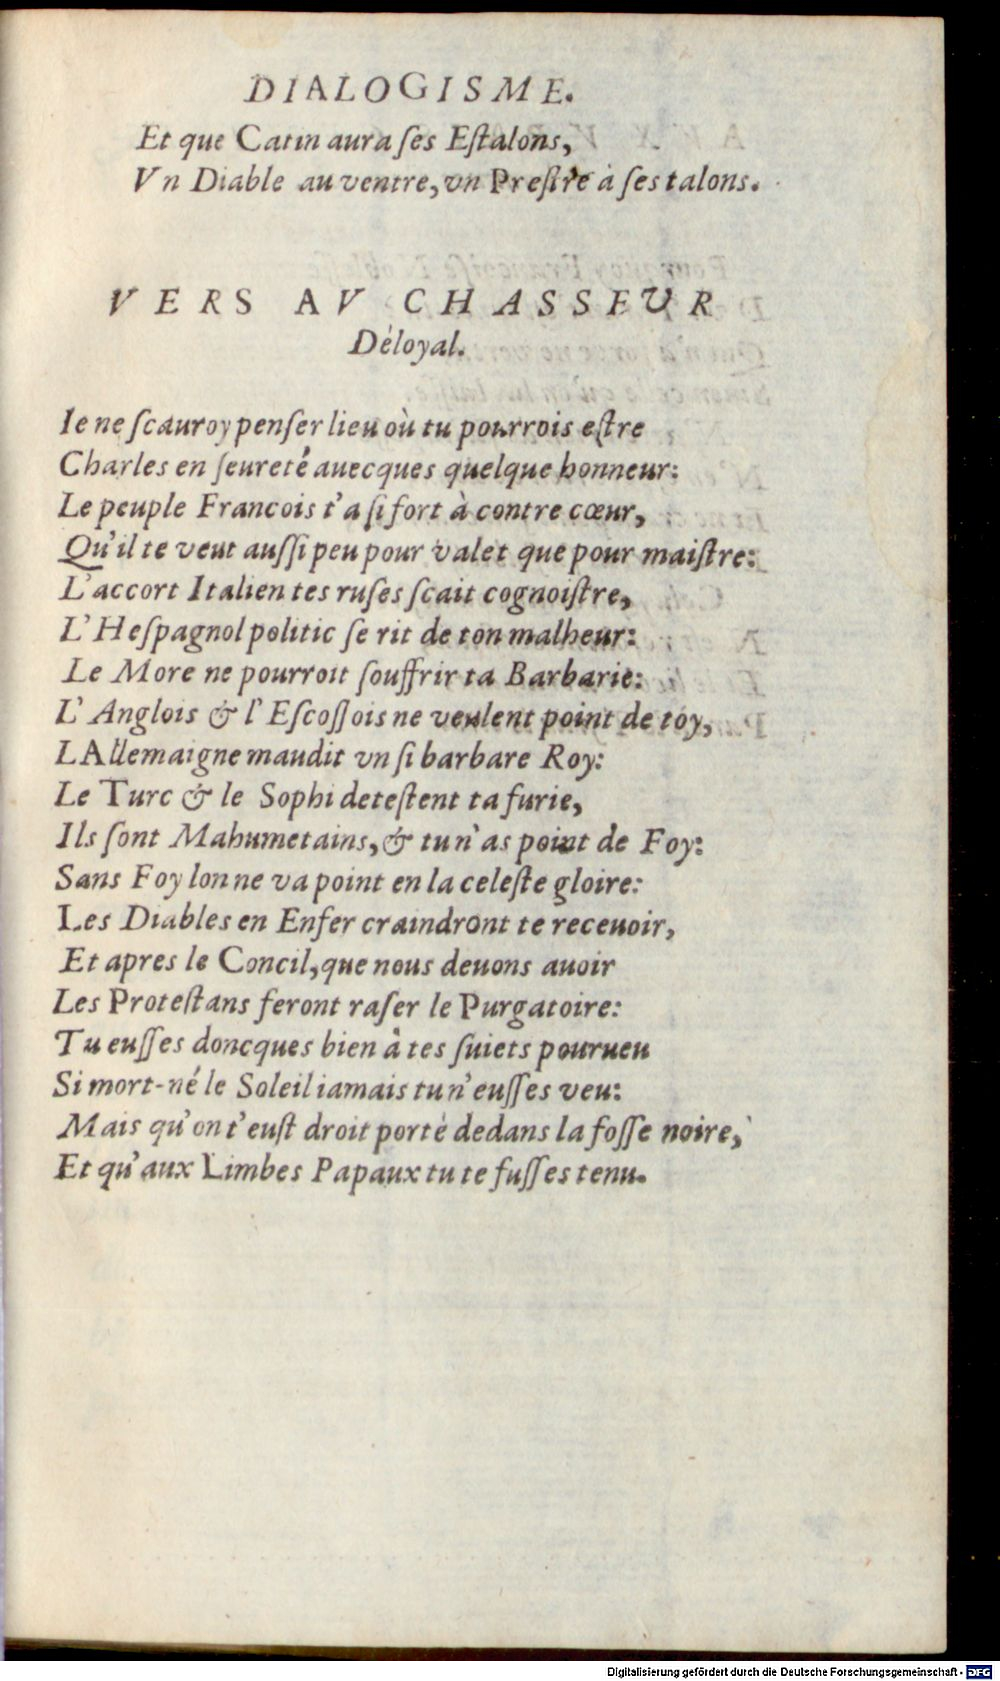 DIALOGISME.
Et que Catin aura ſes Eſtalons,
Vn Diable au ventre, vn Preſtre à ſes talons.
VERS AV CHASSEVR
Déloyal.
Ie ne ſcauroy penſer lieu où tu pourrois eſtre
Charles en ſeureté auecques quelque honneur:
Le peuple Francois t'a ſi fort à contre cœur,
Qu'il te veut auſſi peu pour valet que pour maiſtre:
L'accort Italien tes ruſes ſcait cognoiſtre,
L'Heſpagnol politic ſe rit de ton malheur:
Le More ne pourroit ſouffrir ta Barbarie:
L'Anglois & l'Eſcoſſois ne veulent point de toy,
LAllemaigne maudit vn ſi barbare Roy:
Le Turc & le Sophi deteſtent ta furie,
Ils ſont Mahumetains, & tu n'as point de Foy:
Sans Foy lon ne va point en la celeſte gloire:
Les Diables en Enfer craindront te receuoir,
Et apres le Concil, que nous deuons auoir
Les Proteſtans feront raſer le Purgatoire:
Tu euſſes doncques bien à tes ſuiets pourueu
Si mort-né le Soleil iamais tu n'euſſes veu:
Mais qu'on t'euſt droit porté dedans la foſſe noire,
Et qu'aux Limbes Papaux tu te fuſſes tenu.
Digitalisierung gefördert durch die Deutsche Forschungsgemeinschaft - DFG